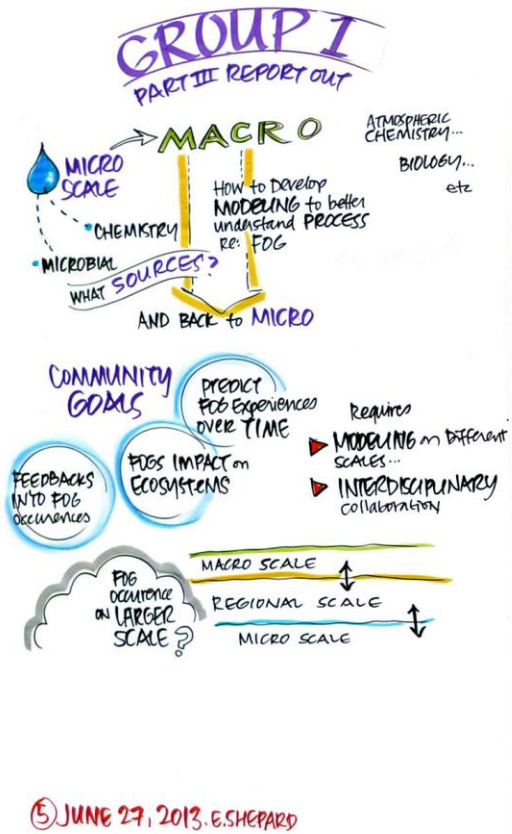 GROUP I
PART III REPORT OUT
MACRO
ATMOSPHERIC
CHEMISTRY...
BIOLOGY...
etc
MICRO
SCALE
CHEMISTRY
MICROBIAL
WHAT SOURCES?
How to Develop
MODELING to better
understand PROCESS
re: FOG
AND BACK to MICRO
COMMUNITY
GOALS
PREDICT
FOG Experiences
OVER TIME
FOGS IMPACT on
ECOSYSTEMS
FEEDBACKS
INTO FOG
occurences
Requires
MODELING on Different
SCALES...
INTERDISCIPLINARY
collaboration
FOG
occurence
on LARGER
SCALE?
MACRO SCALE
REGIONAL SCALE
MICRO SCALE
5 JUNE 27, 2013. E.SHEPARD